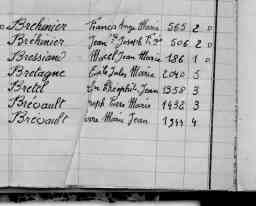 Bréhinier Francis Ange Marie 565 2 0
Bréhinier Jean Bte Joseph 506 2 0
Bressiand Marcel Jean Marie 186 1 0
Bretagne Emile Jules Marie 2040 5
Bretel Théophile Jean 1358 3
Brevault Joseph Pierre Marie 1432 3
Brevault Pierre Marie Jean 1944 4